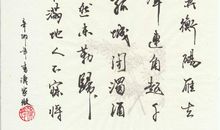 異衡陽雁去
連角起千
孤城閉濁酒
然未勒歸
滿地人不寐將